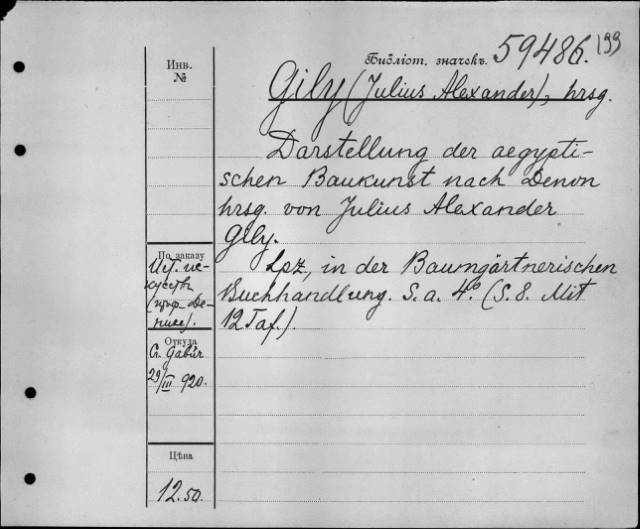 Библіот. значекъ. 59486.
Инв.
№
Gily (Julius Alexander), hrsg.
Darstellung der aegypti-
schen Baukunst nach Denon
hrsg. von Julius Alexander
Gily.
Lpz., in der Baumgärtnerischen
Buchhandlung. S. a. 4° (S. 8. Mit
12 Taf.).
По заказу
Ист. ис-
кусств
Откуда
29/III 920.
Цѣна
12.50.